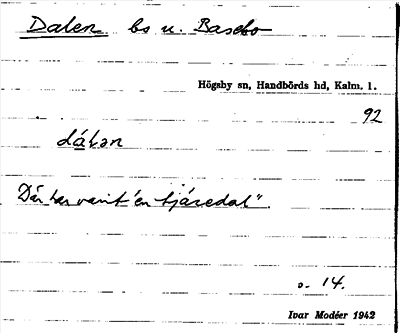 Dalen bs u. Basebo
Högsby sn, Handbörds hd, Kalm. l.
92
dálən
Där har varit "en tjäredal".
s. 14.
Ivar Modéer 1942